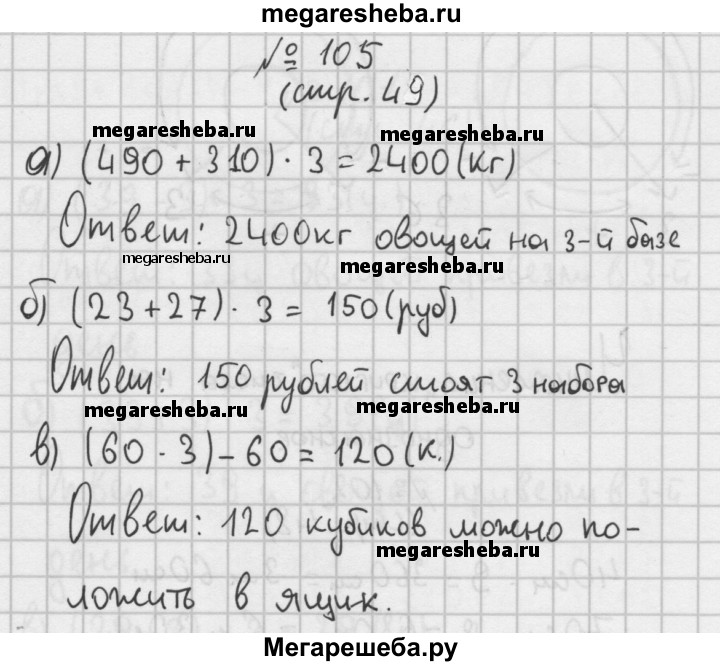 megaresheba.ru
№ 105
(стр. 49)
megaresheba.ru megaresheba.ru
а) (490 + 310) · 3 = 2400 (кг)
Ответ: 2400кг овощей на 3-й базе
megaresheba.ru megaresheba.ru
б) (23 + 27) · 3 = 150 (руб)
Ответ: 150 рублей стоят 3 набора
megaresheba.ru megaresheba.ru
в) (60 · 3) - 60 = 120 (к.)
Ответ: 120 кубиков можно по-
megaresheba.ru
ложить в ящик.
Мегарешеба.ру